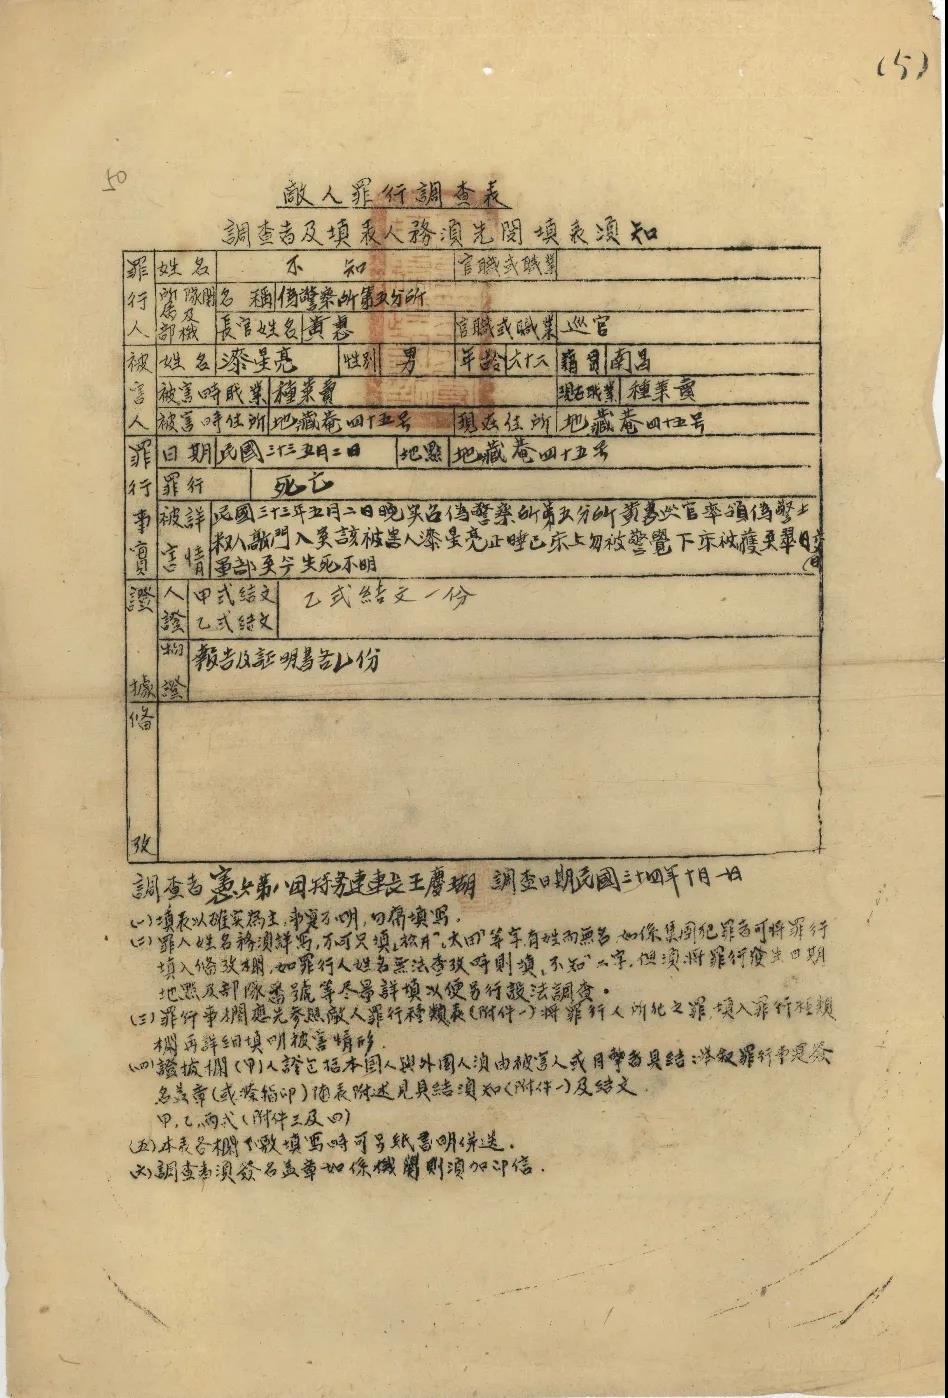 (5)
50
敵人罪行調查表
調查者及填表人務須先閱填表須知
罪行人 姓名 不知 官職或職業
所屬部隊及機關 名稱 偽警察所第五分所
長官姓名 黃 官職或職業 巡官
被害人 姓名 漆星亮 性別 男 年齡 六十六 籍貫 南昌
被害時職業 種菜賣 現在職業 種菜賣
被害時住所 地藏菴四十五号 現在住所 地藏菴四十五号
罪行事實 日期 民國三十三五月二日 地點 地藏菴四十五号
罪行 死亡
被害詳情 民國三十三年五月二日晚 偽警察所第五分所黃 巡官率領偽警士
敲門入 該被害人漆星亮正睡已床上勿被警覺下床被護至翠日
軍部至今生死不明
證據 人證 甲式結文 乙式結文一份
乙式結文
物證 報告及証明書各乙份
備攷
調查者 憲六第八团特务連連長王慶瑚 調查日期民國三十四年十月一日
(一)填表以確实為主,事實不明,勿屬填寫.
(二)罪人姓名務須詳寫,不可只填"松井","太田"等字有姓而無名.如係集團犯罪者可將罪行
填入俻攷欄,如罪行人姓名無法查攷時則填"不知"二字,但須將罪行發生日期
地點及部隊番號等尽量詳填以便另行設法調查.
(三)罪行事欄應先參照敵人罪行種類表(附件一)將罪行人所犯之罪,填入罪行種類
欄再詳細填明被害情形.
(四)證據欄(甲)人證包括本國人與外國人須由被害人或目擊者具結 叙罪行事實簽
名盖章(或搽指印)随表附述見具結須知(附件一)及結文
甲,乙,丙式(附件三及四)
(五)本表各欄不敷填寫時可另紙書明併送.
(六)調查者須簽名盖章如係機關則須加印信.